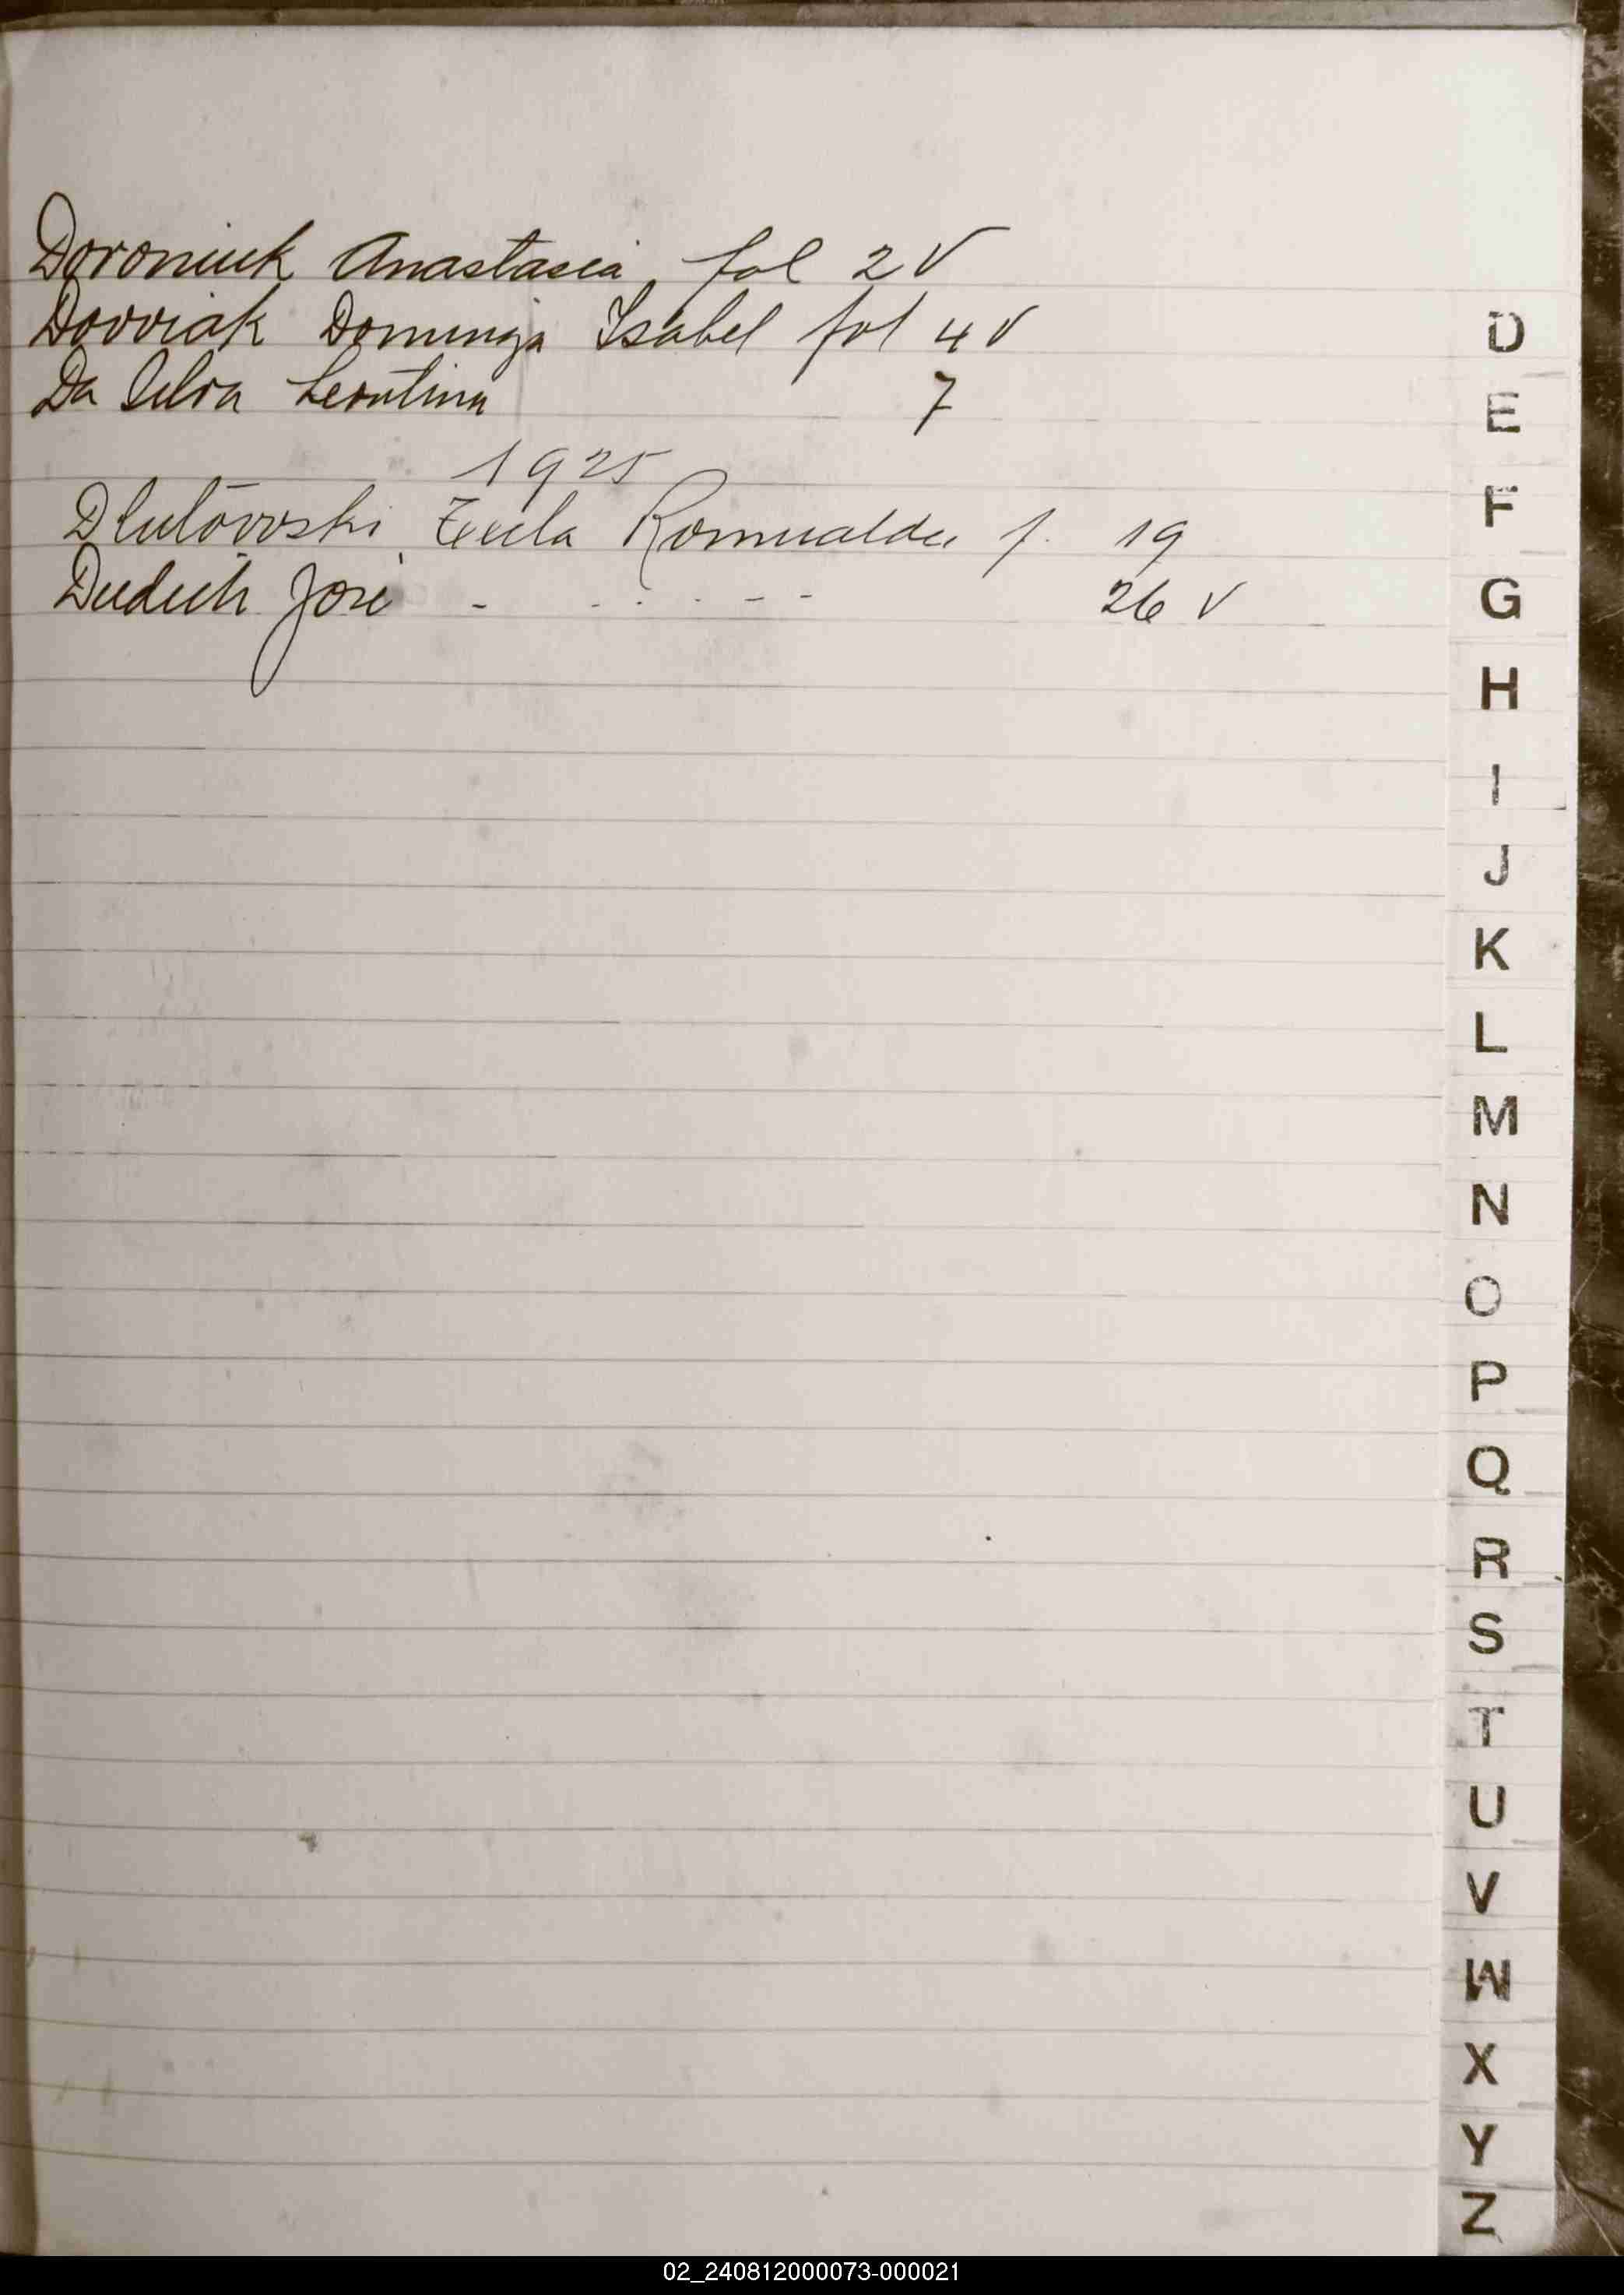 Doroniuk Anastasia fol 2 V
Dovviak Dominga Isabel fol 4 V
Da Silva Leontina 7
1925
Dlutowski Romualda f. 19
Dudich José - - - - - - 26 V
D
E
F
G
H
I
J
K
L
M
N
O
P
Q
R
S
T
U
V
W
X
Y
Z
02_240812000073-000021